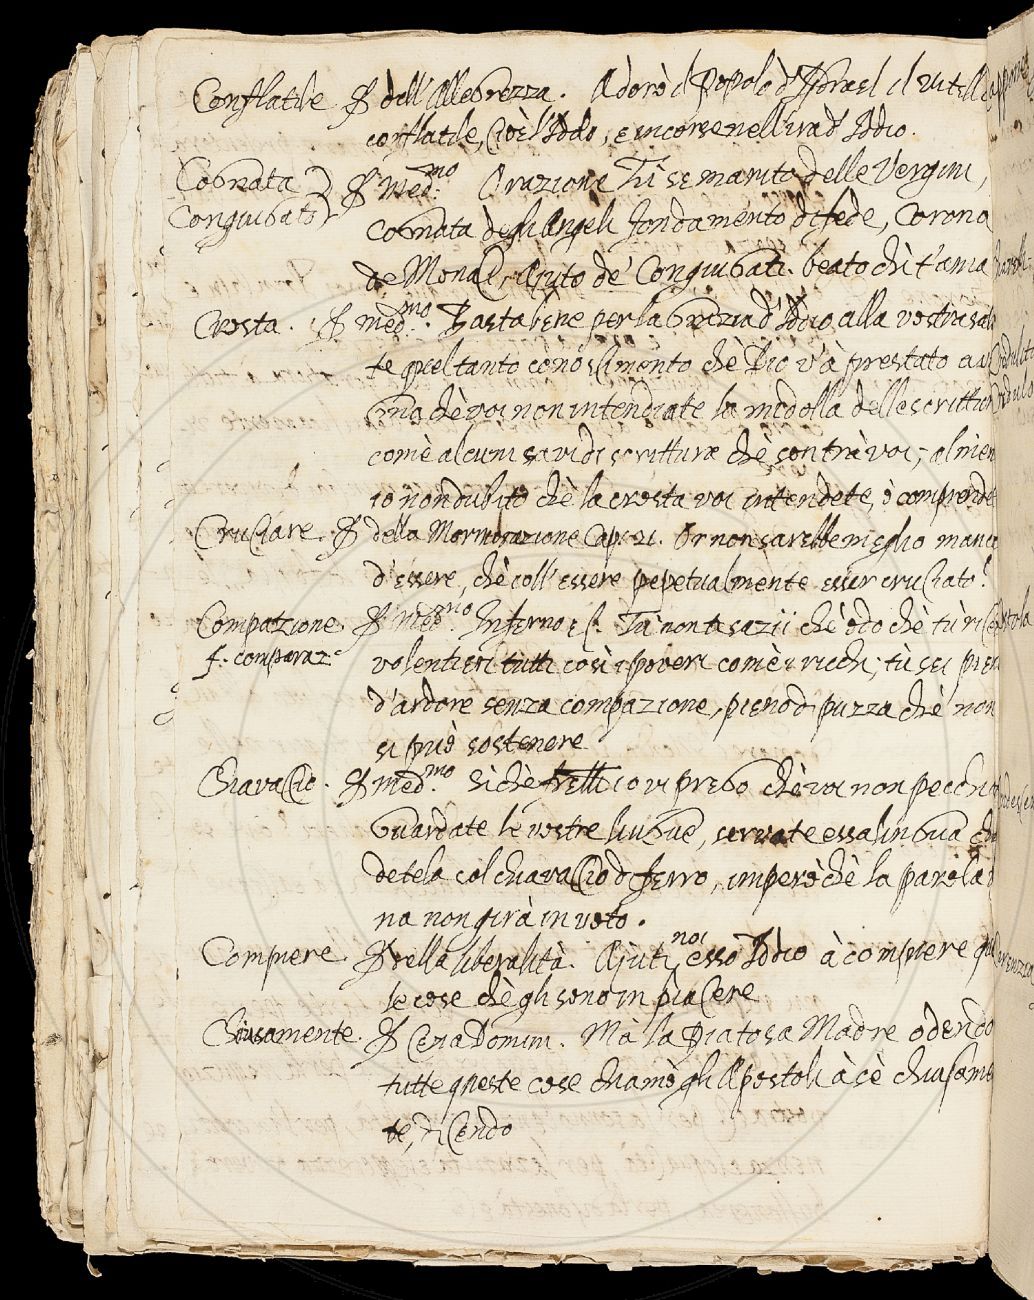 Conflatile P. dell'Allegrezza. Adorò il Popolo d'Isdrael il vitello
conflatile, cioè l'Idolo, e incorse nell'ira d'Iddio.
Cognata P. med.mo Orazione Tù se marito delle Vergini,
Congiugato cognata degli Angeli fondamento di fede, Corona
de Monaci, Ajuto de' Congiugati. beato chi t'ama
Crosta. P. med.mo. Basta bene per la Grazia d'Iddio alla vostra salu
te quel tanto conoscimento chè Dio v'à prestato
chè voi non intendiate la midolla delle scrittur
com'è alcuni savi di scritture chè contrà voi; almen
io non dubito chè la crosta voi intendete, ò comprende
Cruciare. P. della Mormorazione Cap: 21. Or non sarebbe meglio manca
d'essere, chè coll'essere pepetualmente esser cruciato?
Compazione P. med.mo Inferno
f. comparaz. volentieri tutti così i poveri com'è i ricchi; tù sei pien
d'ardore senza compazione, pieno di puzza chè non
si può sostenere
Chiavaccio. P. med.mo Sì chè frelli io vi prego chè voi non pecchi
Guardate le vostre lingue, serrate essa lingua chiu
detela col chiavaccio di ferro, imperò chè la parola
na non girà in voto.
Compiere P. della liberalità. Ajuti noi esso Iddio à compiere que
le cose chè gli sono in piacere
Chiusamente. P. Cena Domini. Mà la Piatosa Madre odendo
tutte queste cose chiamò gli Apostoli à sè chiusamen
te, dicendo